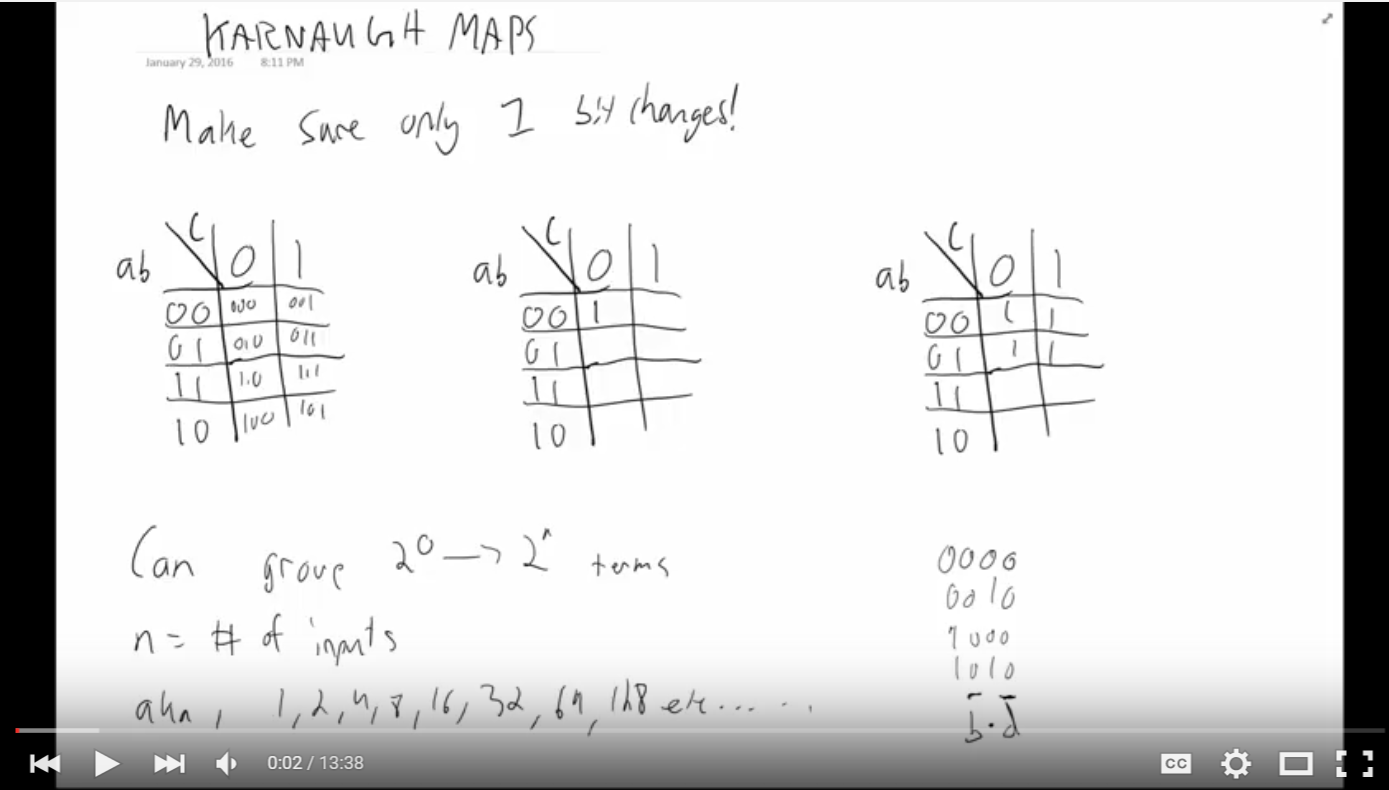 KARNAUGH MAPS
January 29, 2016 8:11 PM
Make sure only 1 bit changes!
c
ab 0 1
00 000 001
01 010 011
11 110 111
10 100 101
c
ab 0 1
00 1
01
11
10
c
ab 0 1
00 1 1
01 1 1
11
10
Can group 2^0 → 2^n terms
n = # of inputs
aka, 1, 2, 4, 8, 16, 32, 64, 128 etc.....
0000
0010
1000
1010
b̄·d̄
0:02 / 13:38
CC